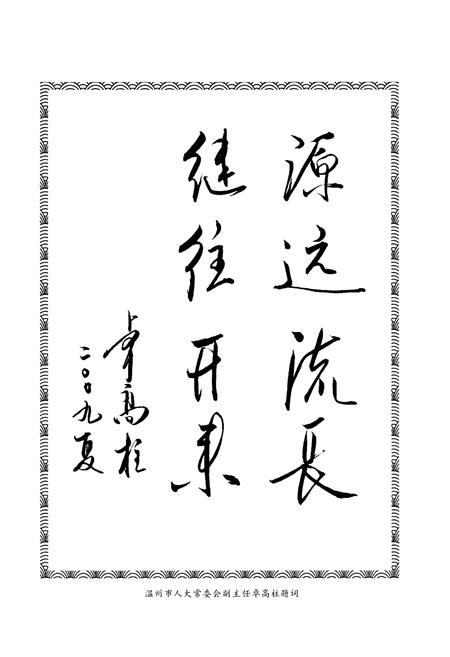 源远流长
继往开来
卓高柱
二〇〇九夏
温州市人大常委会副主任卓高柱题词